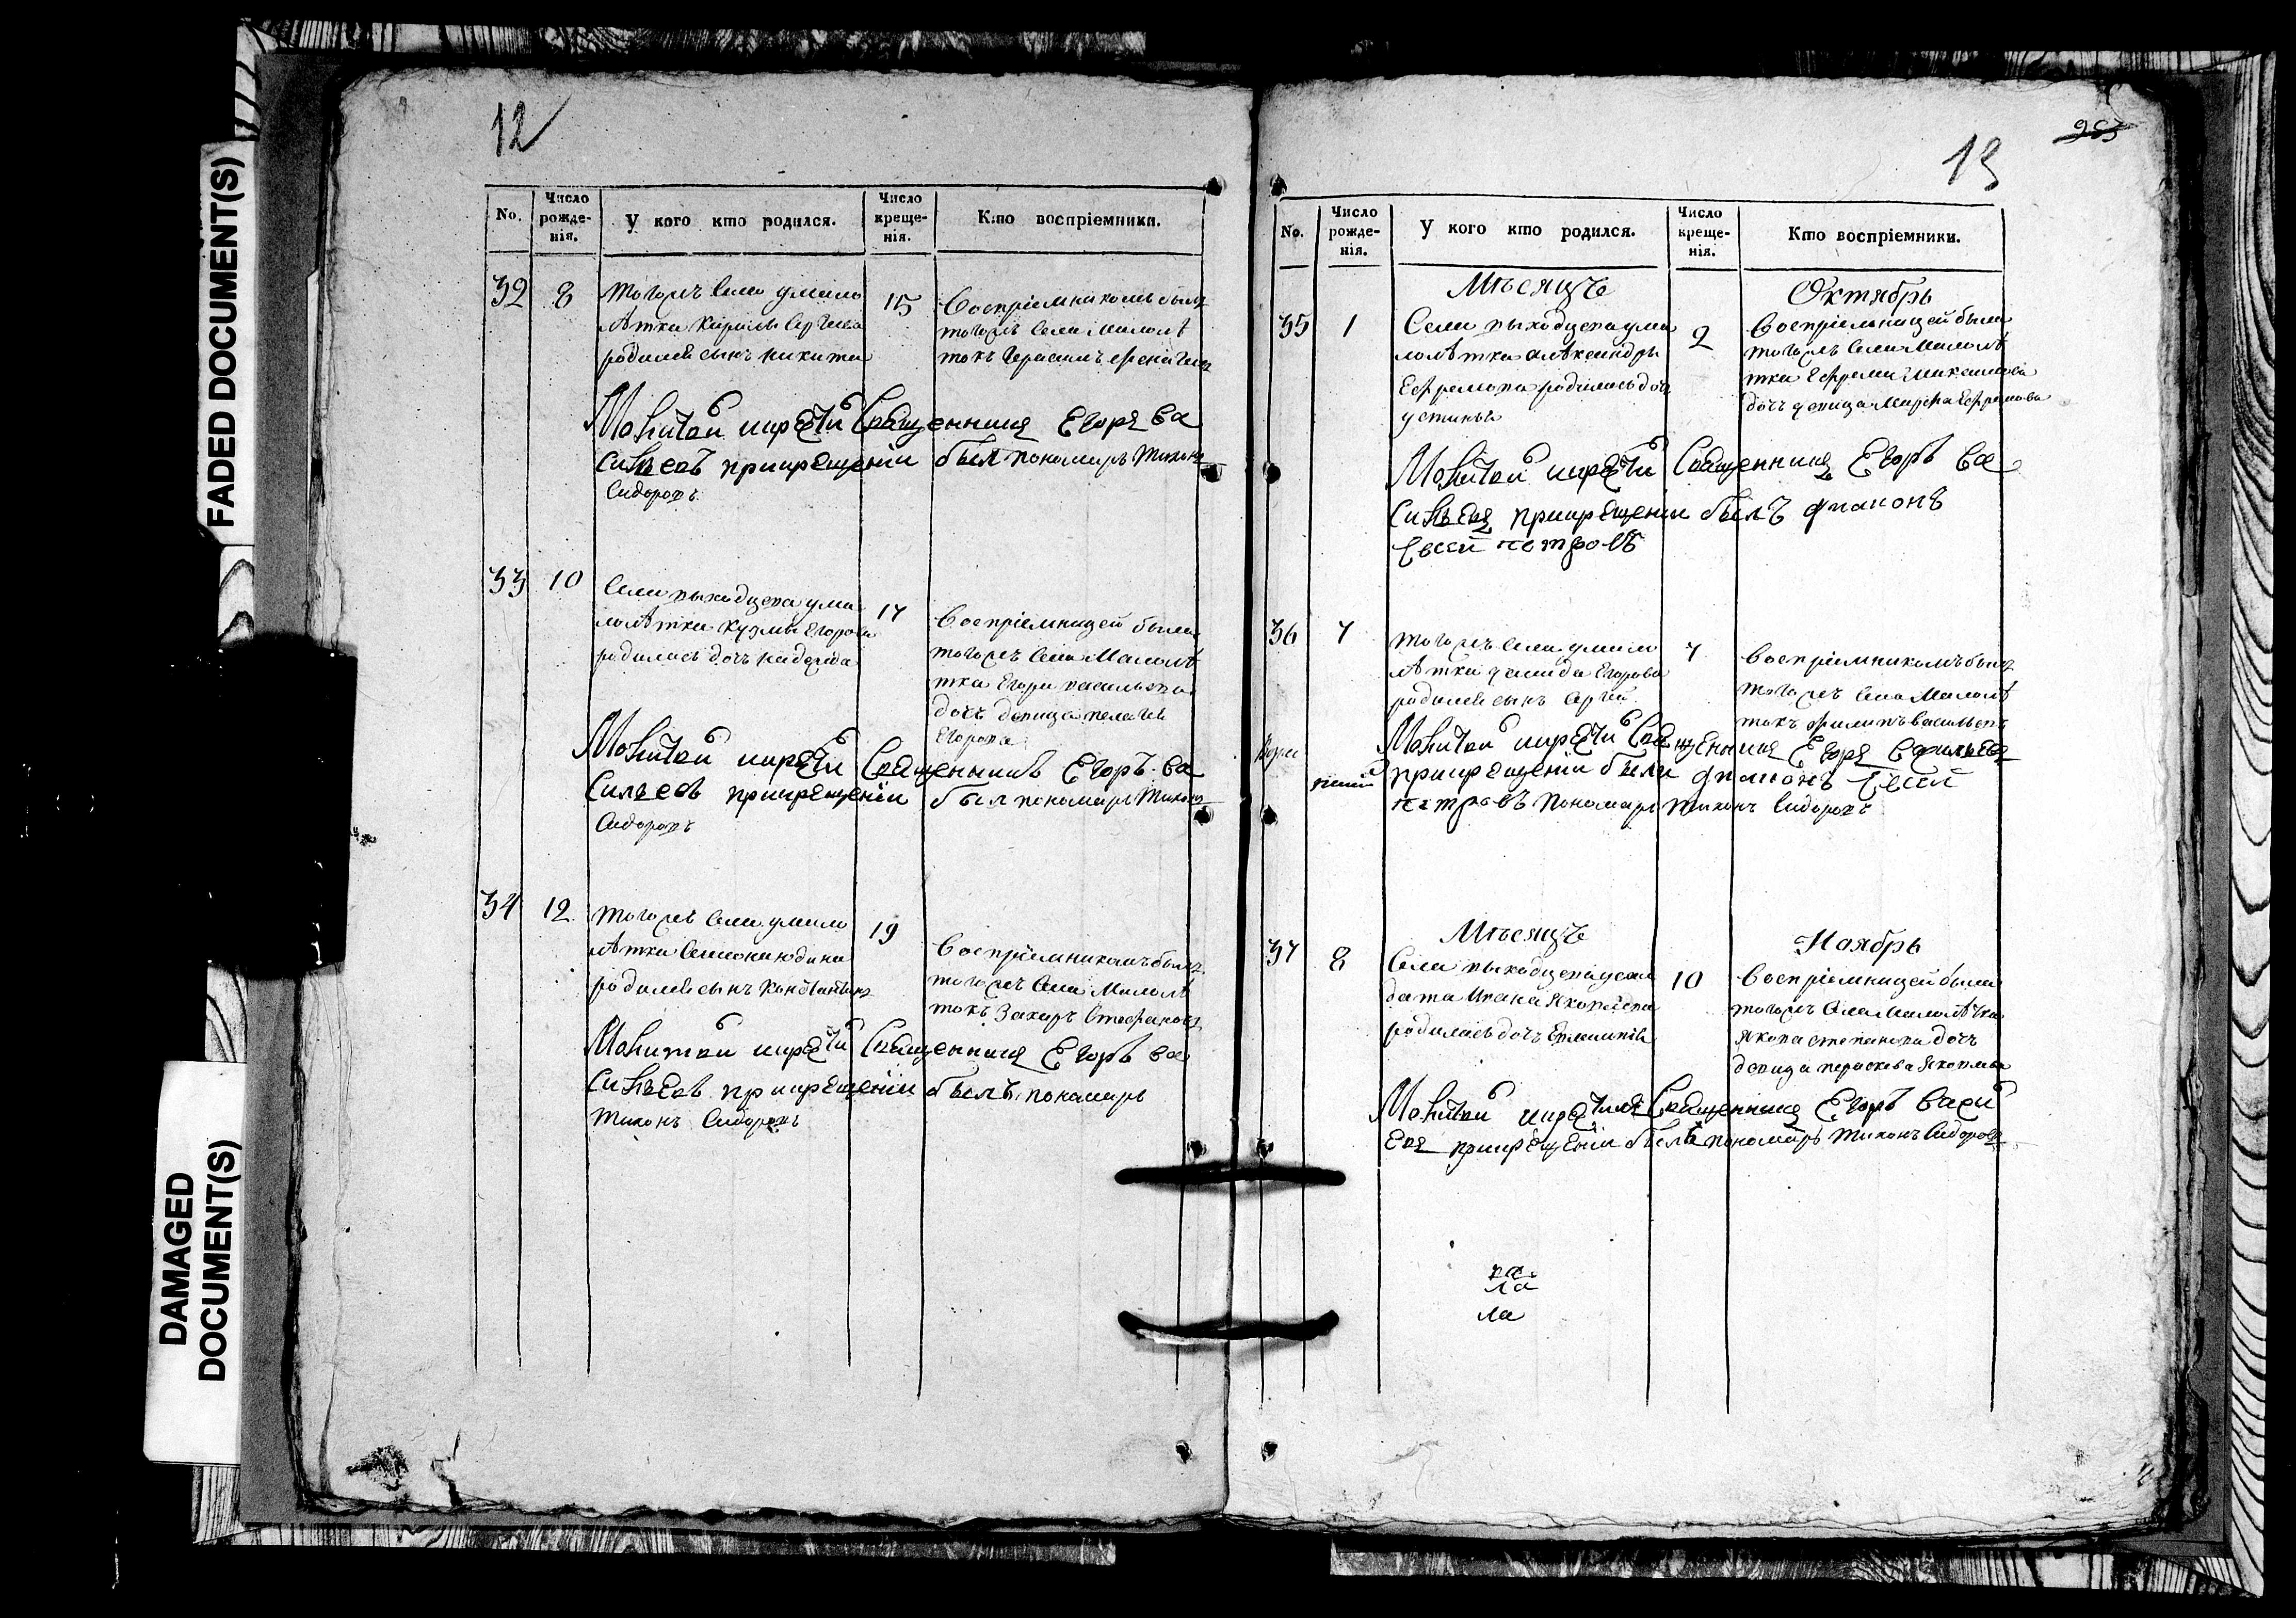 FADED DOCUMENT(S)
DAMAGED
DOCUMENT(S)
12
No.
Число
рожде-
нія.
У кого кто родился.
Число
креще-
нія.
Кто воспріемники.
32
8
тогожъ села умало
лѣтка Кирилы Сергѣева
родился сынъ никита
15
Воспріемникомъ былъ
тогожъ села малолѣ
токъ Герасимъ
Молитвовалъ и крестилъ Священникъ Егоръ Ва
сильевъ прикрещеніи был пономарь Тихонъ
Сидоровъ
33
10
Села выходцева ума
лолѣтка Кузмы Егорова
родилась дочь надежда
17
Воспріемницей была
тогожъ села Малолѣ
тка Егора васильева
дочь девица пелагея
Егорова
Священникъ Егоръ Ва
сильевъ прикрещеніи был пономарь Тихонъ
Сидоровъ
34
12
тогожъ села умало
лѣтка Семиона юдина
родился сынъ константинъ
19
Воспріемникомъ былъ
тогожъ села Малолѣ
токъ Захаръ Стефановъ
Священникъ Егоръ Ва
сильевъ прикрещеніи былъ пономарь
Тихонъ Сидоровъ
13
No.
Число
рожде-
нія.
У кого кто родился.
Число
креще-
нія.
Кто воспріемники.
Мѣсяцъ
Октябрь
35
1
Села выходцева ума
лолѣтка александры
Ефремова родилась дочь
устинья
2
Воспріемницей была
тогожъ села Малолѣ
тка Ефрема максимова
дочь девица Марфа Ефремова
Священникъ Егоръ Ва
сильевъ прикрещеніи былъ диаконъ
Евсей петровъ
36
7
тогожъ села умало
лѣтка Егорова
родился сынъ Сергей
7
Воспріемникомъ былъ
тогожъ села Малолѣ
токъ филипъ васильевъ
Священникъ Егоръ Васильевъ
прикрещении были диаконъ Евсей
петровъ пономарь тихонъ Сидоровъ
Мѣсяцъ
Ноябрь
37
8
Села выходцева усол
дата Ивана Яковлева
родилась дочь Евлампія
10
Воспріемницей была
тогожъ села Малолѣтка
Якова степанова дочь
девица параскева Яковлева
Священникъ Егоръ Васил
евъ прикрещеніи былъ пономарь тихонъ Сидоровъ
ла
ла